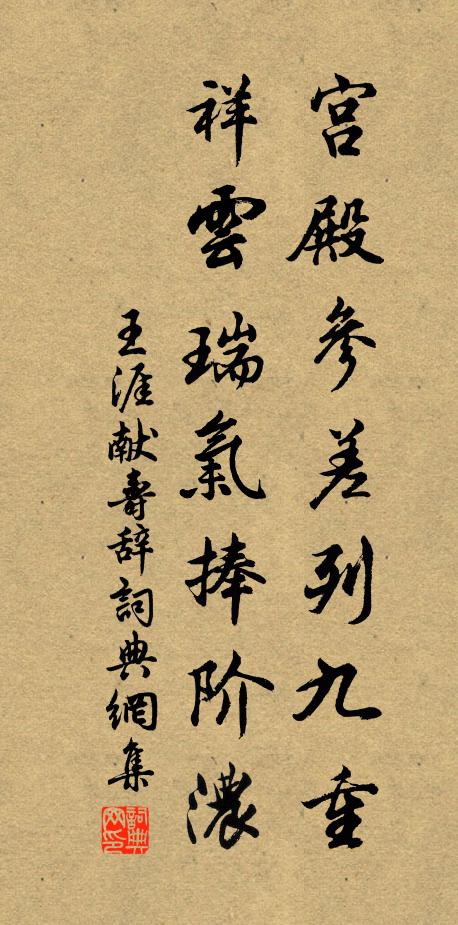 宫殿參差列九重
祥雲瑞氣捧阶濃
王涯献壽辞詞典網集
詞典網印